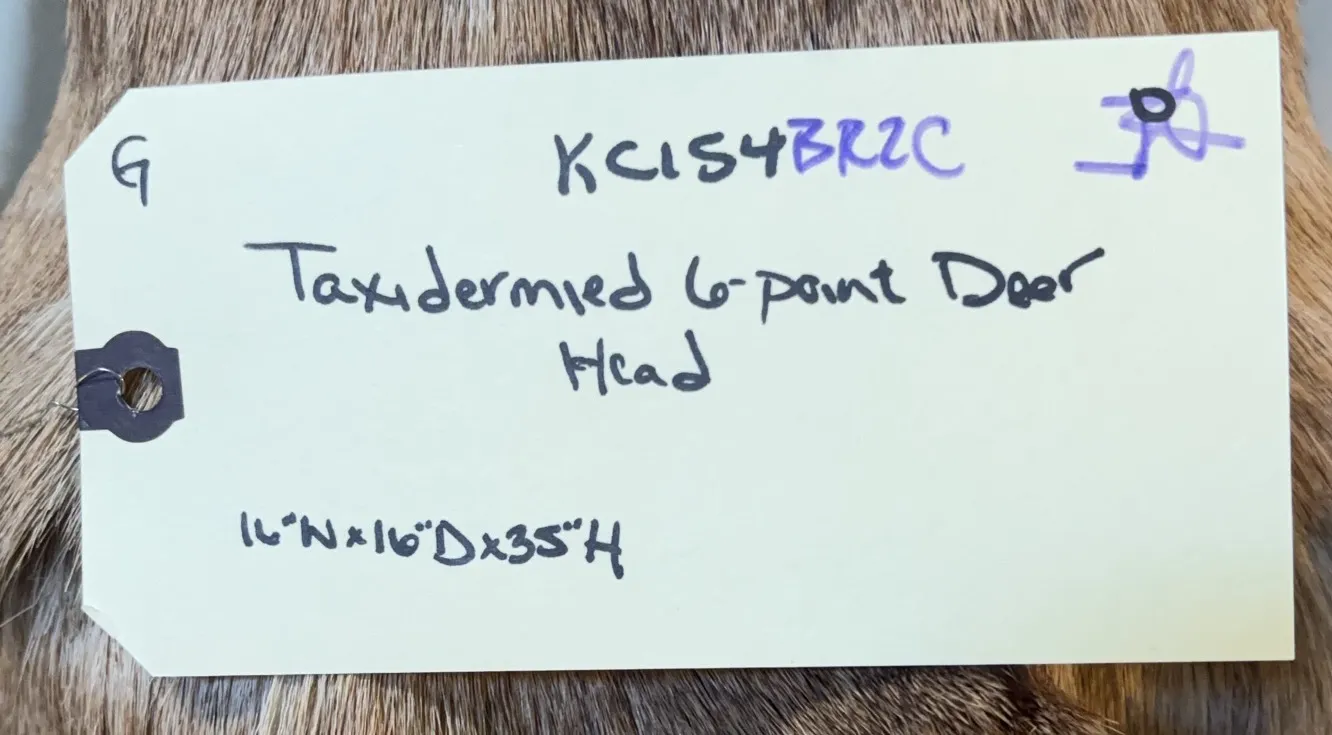 G
KC154BR2C
Taxidermied 6-point Deer
Head
16"W x 16"D x 35"H